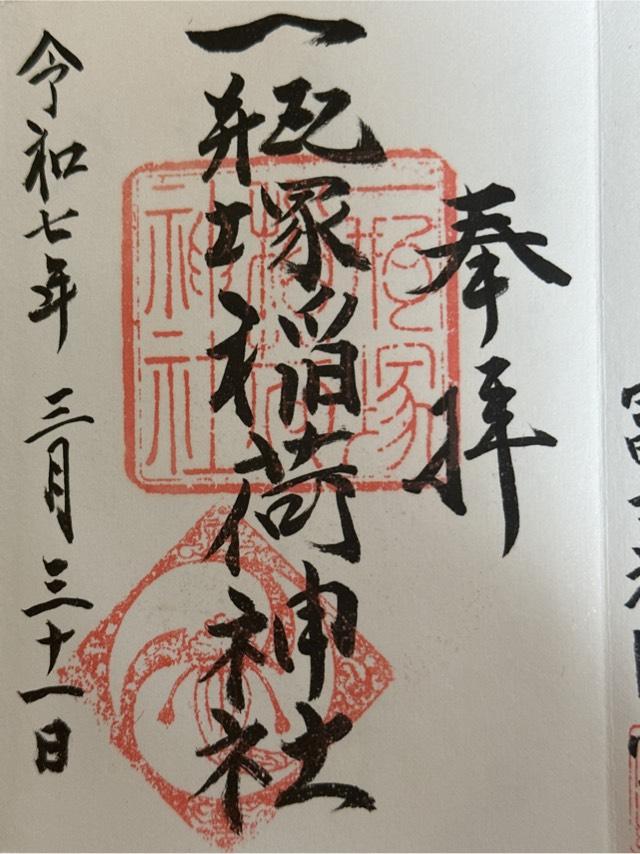 奉拝
一瓶塚稲荷神社
令和七年 三月 三十一日
一瓶塚
稲荷
神社